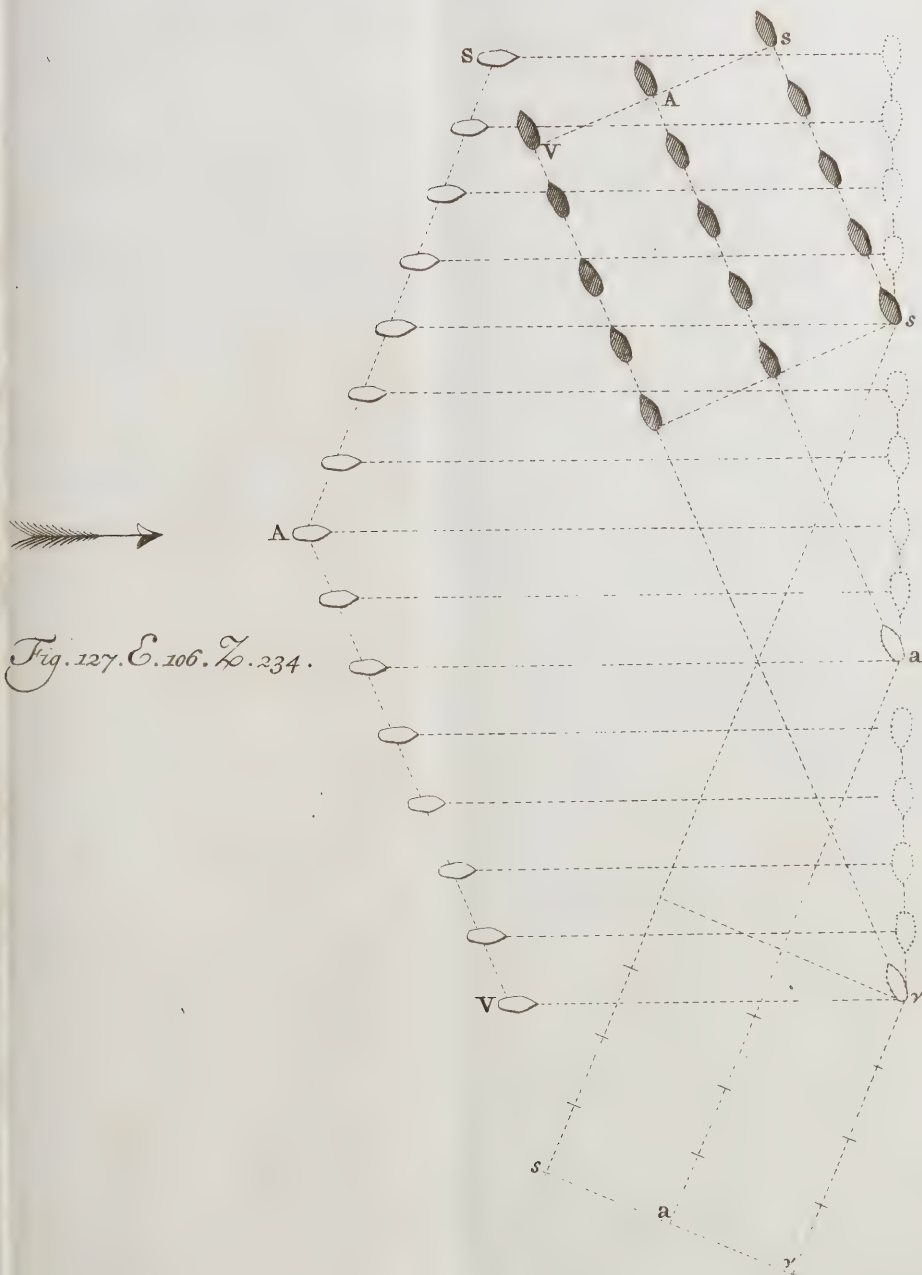 S
s
A
V
s
A
Fig. 127. E. 106. Z. 234.
a
V
v
s
a
v